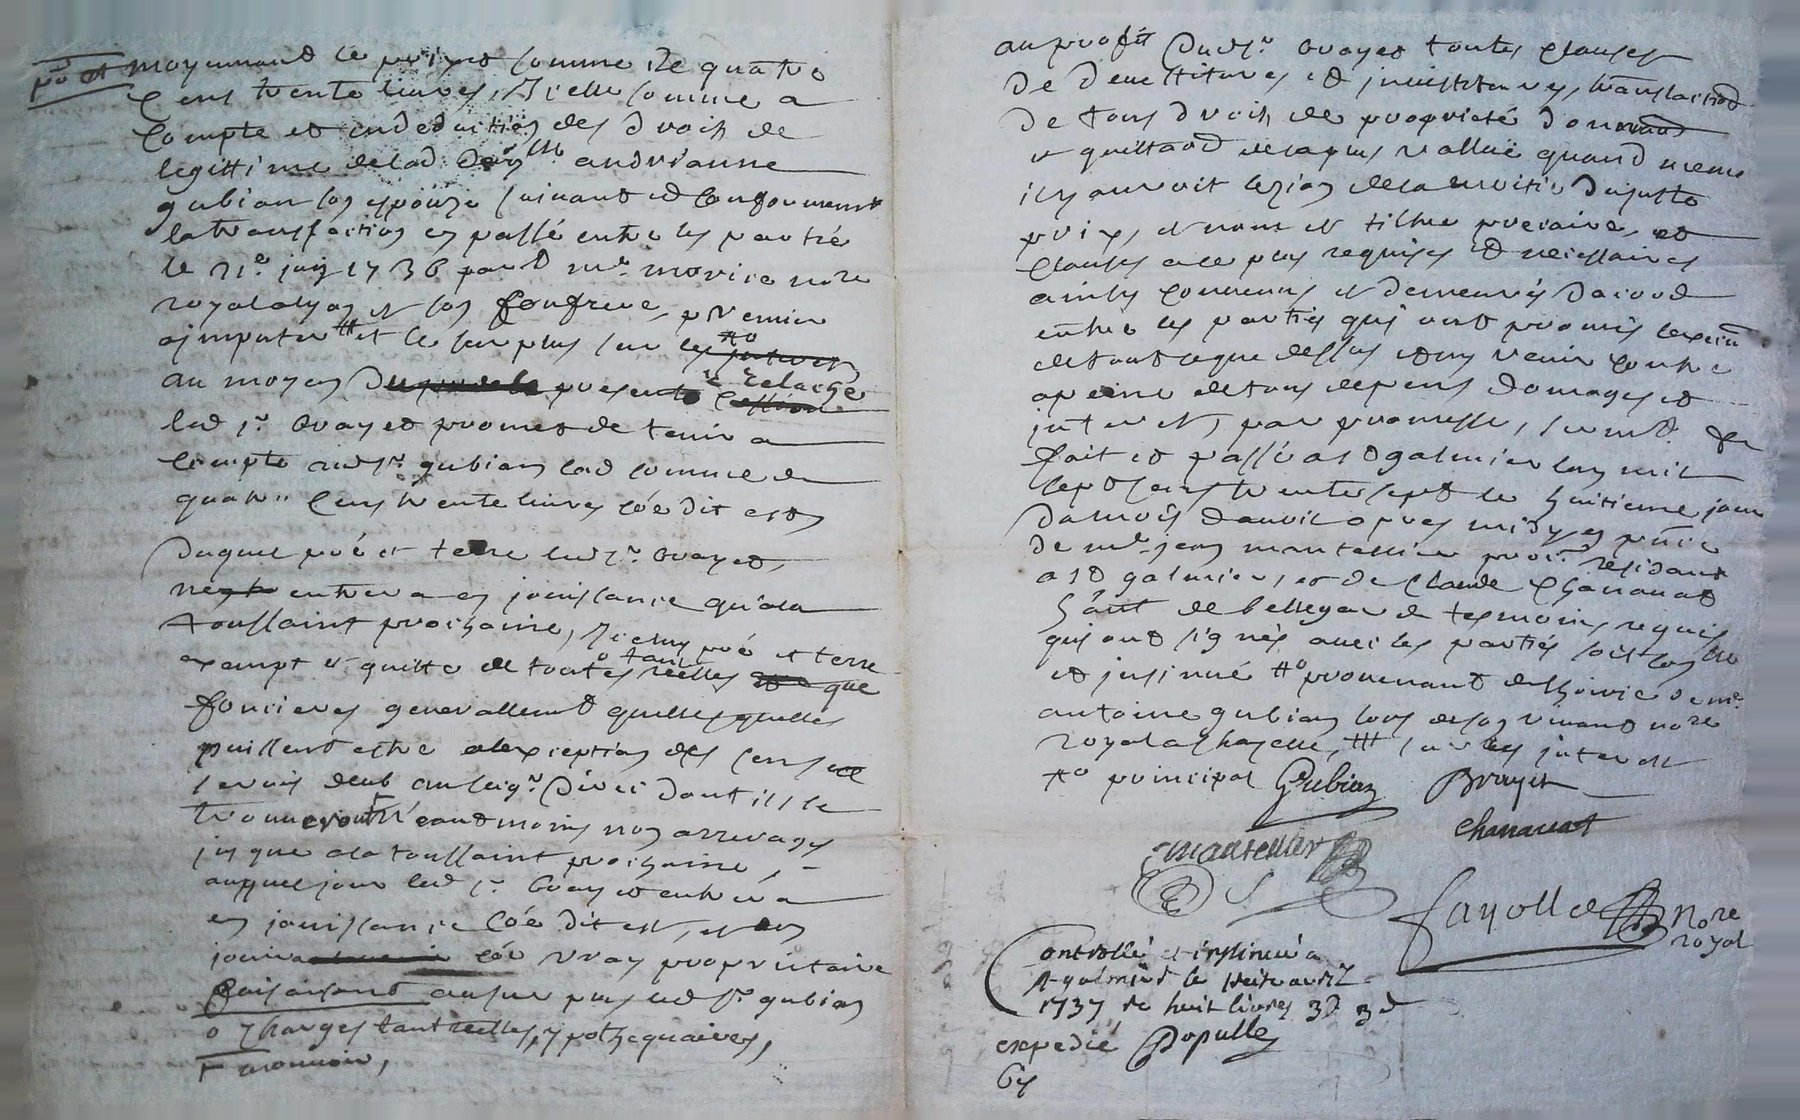 moyennant le prix et somme de quatre
cens trente livres, Icelle somme a
compte et en deduction des droits de
legittime de lad. dem^lle andrianne
gubian son epouze suivant et conformem^t
la transaction en passé entre les partie
le 21^e juin 1736 pard^t m^e morice no^re
royal et son confrere, premier
a imputer ^{##} et le surplus sur les ^{#o} interets
au moyen du present ^{relaché} cession
led s^r. Brayet promet de tenir a
compte aud s^r. gubian lad somme de
quatre cens trente livres côe dit est
duquel pré et terre led s^r. Brayet,
entrera en jouissance qu'a la
toussaint prochaine, Iceux pré et terre
exempt et quitte de toutes ^{o tant} réelles que
foncieres generallement quelles quelles
puissent estre a l'exception des cens
servis deub au seig^r. Direct dont ils se
trouveront neantmoins non arrerages
jusque a la toussaint prochaine,
auquel jour led s^r. Brayet entrera
en jouissance côe dit est, et en
jouira côe vray proprietaire
faisant au surplus led s^r. gubian
o charges tant reelles, ypothequaires,
au profit dud s^r. Brayet toutes clauses
de devettitures et investitures, translation
de tous droits de proprieté donnant
et quittant de la plus vallue quand meme
il y auroit lezion de la moitié du juste
prix, et nom et tiltre precaire, et
clauses a ce plus requises et necessaires
ainsy convenus et demeurés d'acord
entre les parties qui ont promis l'exeon
de tout ce que dessus et ny venir contre
a peine de tous depens domages et
interets, par promesse, serm^t. &c
fait et passé a s^t galmier l'an mil
sept cens trente sept le huitieme jour
du mois d'avril apres midy en pnce
de m^e jean mantellier proc^r. residant
a s^t galmier, et de claude chanavat
h^ant de bellegarde tesmoins requis
qui ont signés avec les parties soit con^lle
et insinué #o provenant de l'hoirie de m^e.
antoine gubian lors de son vivant no^re
royal a chazelle, ## sur les interets
#o principal Gubian Brayet
chanavat
Mantellier
fayolle No^re
royal
Controllé et insinué a
s^t galmier le huit avril
1737 Re huit livres 3s 3d
expedié Populle